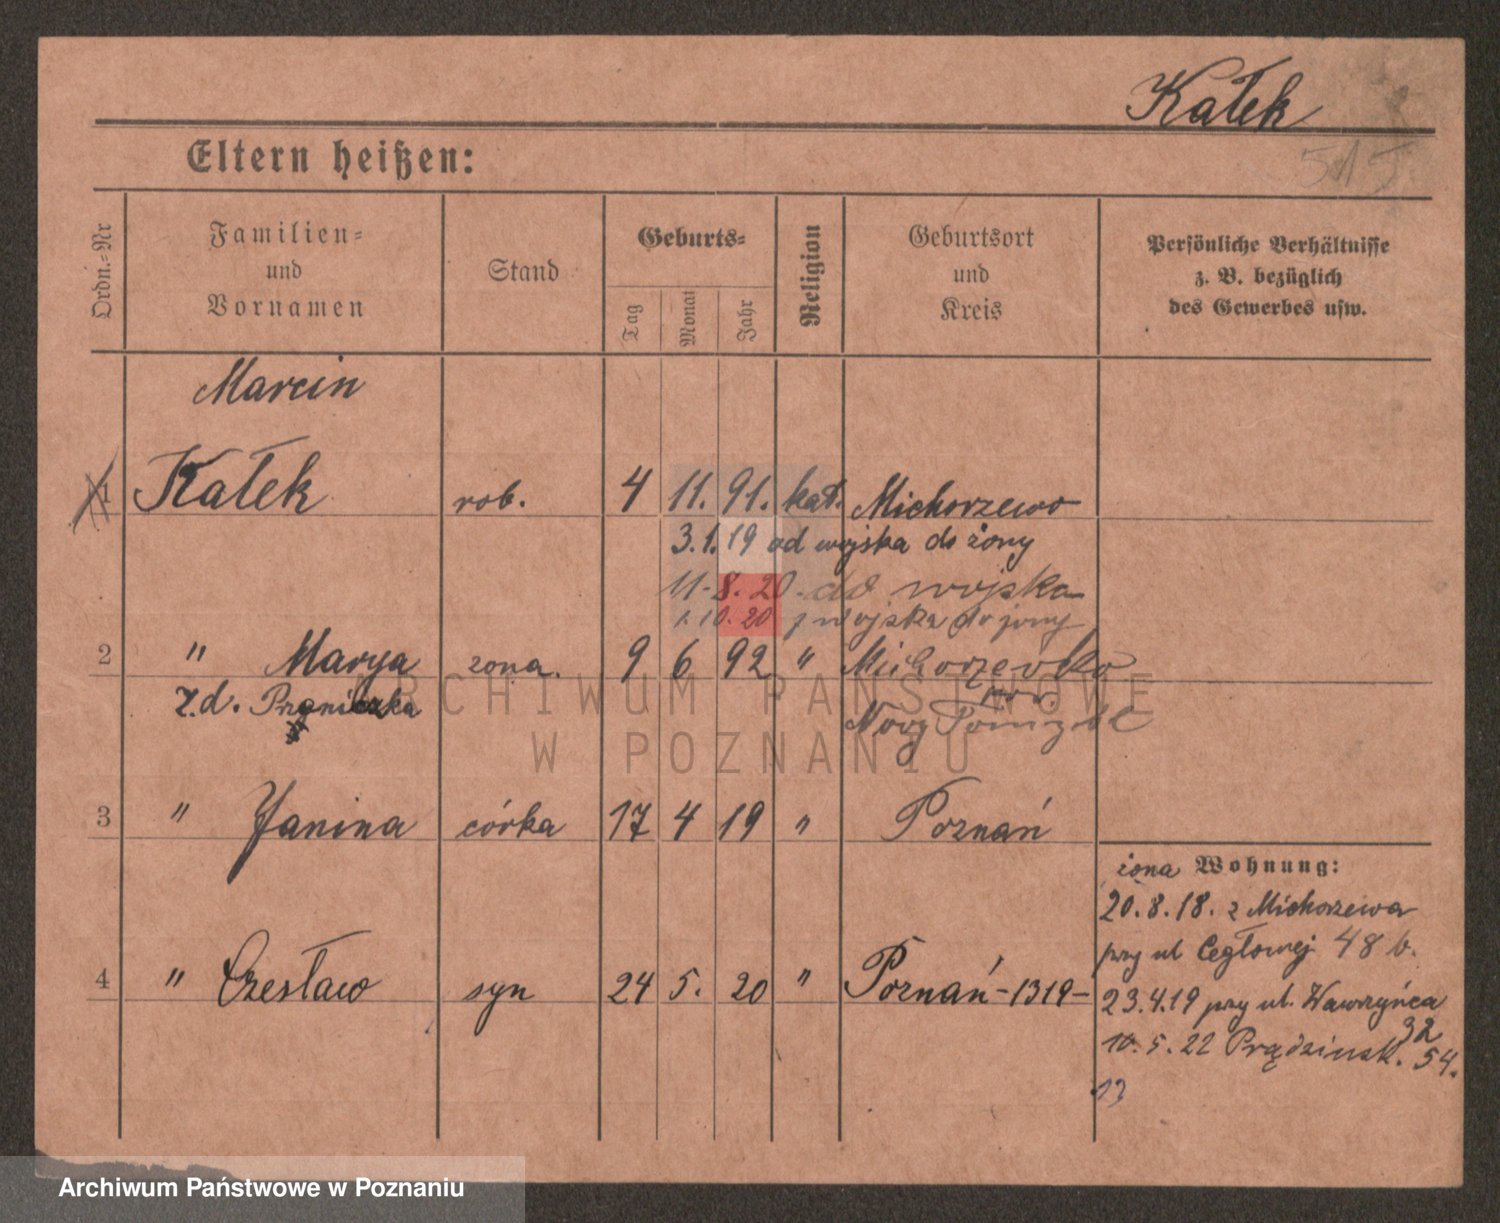 Kałek
515
Eltern heißen:
Ordn.-Nr
Familien-
und
Vornamen
Stand
Geburts-
Tag
Monat
Jahr
Religion
Geburtsort
und
Kreis
Persönliche Verhältnisse
z. B. bezüglich
des Gewerbes usw.
Marcin
1 Kałek rob. 4 11. 91. kat. Michorzewo
3.1.19 od wojska do żony
11-8.20. do wojska
1.10.20 z wojska do żony
2 " Marya żona. 9 6 92 " Michorzewko
pow.
z.d. Nowy Tomyśl
3 " Janina córka 17 4 19 " Poznań
żona Wohnung:
20.8.18. z Michorzewa
przy ul Cegłowej 48 b.
4 " Czesław syn 24 5. 20 " Poznań -1319-
23.4.19 przy ul. Wawrzyńca
32
10.5.22 Prądzińsk. 54.
13
ARCHIWUM PAŃSTWOWE
W POZNANIU
Archiwum Państwowe w Poznaniu